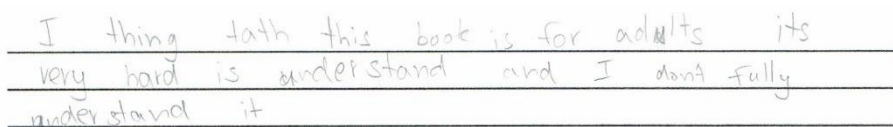 I thing tath this book is for adults its
very hard is understand and I dont fully
understand it